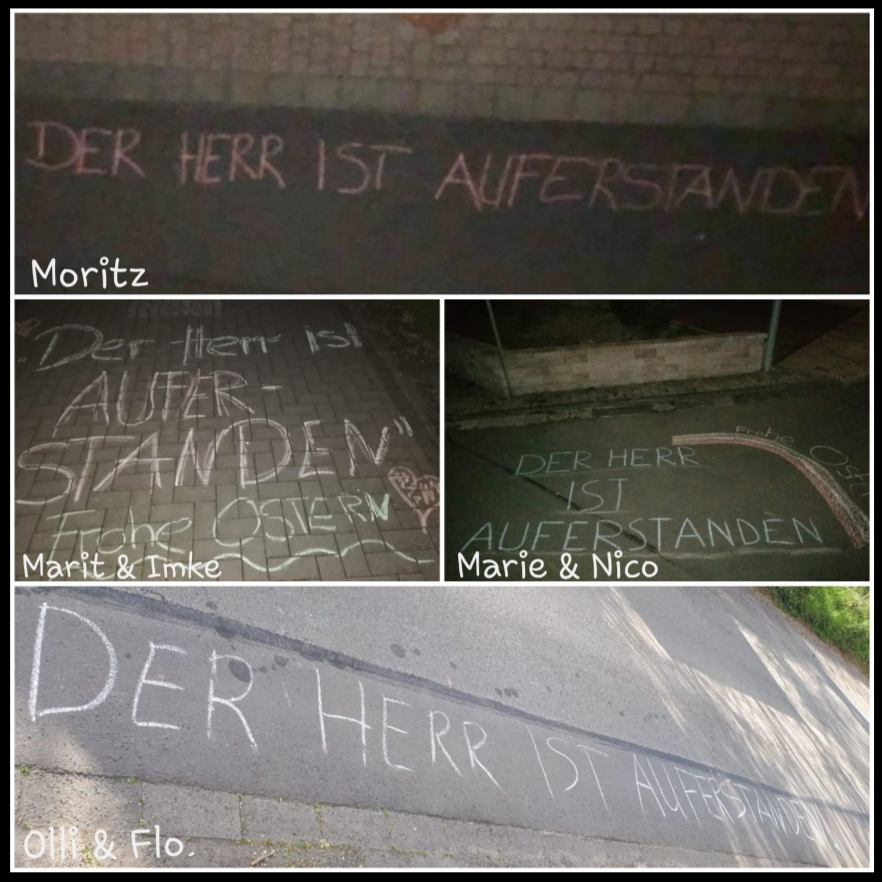 DER HERR IST AUFERSTANDEN
Moritz
"Der Herr ist
AUFER-
STANDEN"
Frohe OSTERN
Marit & Imke
DER HERR
IST
AUFERSTANDEN
Frohe
Marie & Nico
DER HERR IST AUFERSTANDEN
Olli & Flo.